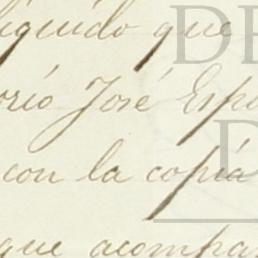 líquido que
orio José Espo
con la copia
que acompa